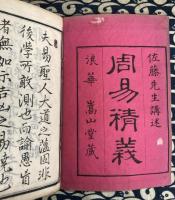 佐藤先生講述
周易精義
浪華 嵩山堂藏
夫易聖人大道之蘊固非
後學所敢測也而論愚昧
者無如示吉凶之易曉也